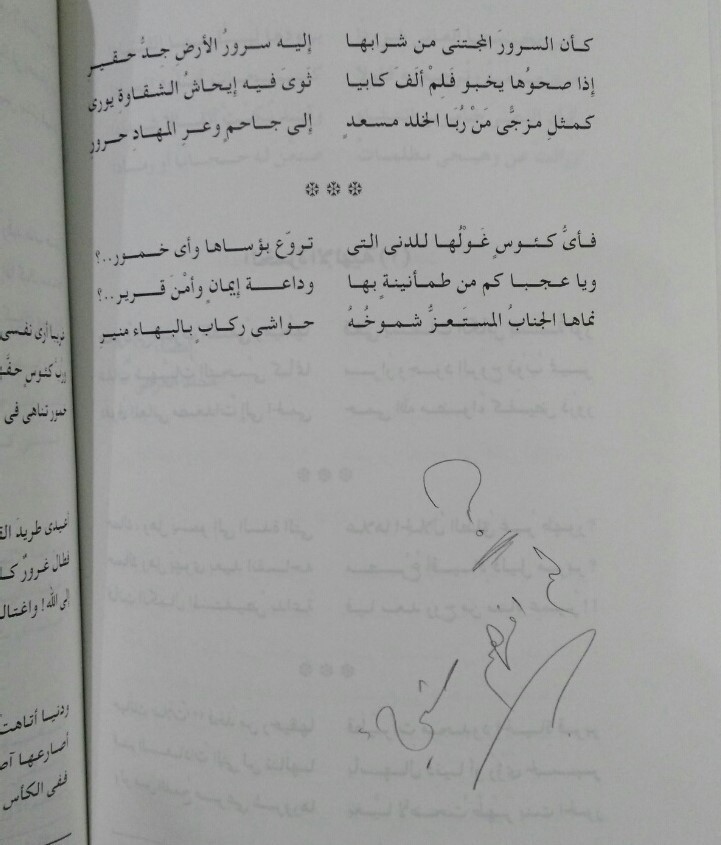 كأن السرورَ المجتنى من شرابها إليه سرورُ الأرضِ جدُّ حقيرِ
إذا صحوُها يخبو فَلِمْ ألفَ كابيا ثوىَ فيه إيحاشُ الشقاوةِ يورى
كمثلِ مزجَّى مَنْ رُبَا الخلد مسعدٍ إلى جاحمٍ وعرِ المهادِ حرورِ
❄ ❄ ❄
فأىُّ كئوسٍ غَولُها للدنى التى تروّع بؤساها وأى خمورِ..؟
ويا عجبا كم من طمأنينةٍ بها وداعة إيمانٍ وأمْنَ قريرِ..؟
نماها الجنابُ المستَعزُّ شموخُهُ حواشى ركابٍ بالبهاء منيرِ
لم أفهم شيئا
؟
حفَّها
خمور تناهى فى
أعيدى طريدَ
فطال غرورٌ
إلى الله! واغتال
ودنيا أتاهت
أصارعها
ففى الكأس